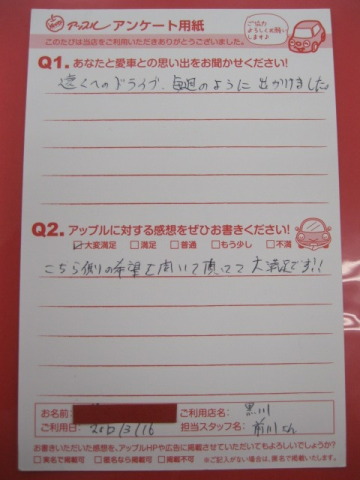 アップル アンケート用紙
ご協力
よろしくお願い
します♪
このたびは当店をご利用いただきありがとうございました。
Q1.あなたと愛車との思い出をお聞かせください!
遠くへのドライブ、毎週のように出かけました。
Q2.アップルに対する感想をぜひお書きください!
☑大変満足 □満足 □普通 □もう少し □不満
こちら側の希望を聞いて頂けて大満足です!!
お名前: ご利用店名: 黒川
ご利用日: 担当スタッフ名: 前川さん
お書きいただいた感想を、アップルHPや広告に掲載させていただいてもよろしいでしょうか?
□実名で掲載可 □匿名なら掲載可 □掲載不可 ※ご記入がない場合は、匿名で掲載いたします。